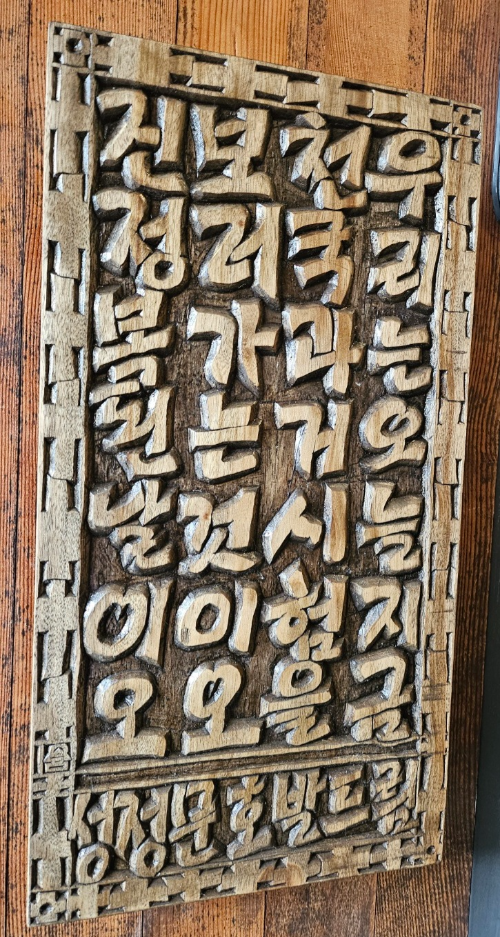 우리는오늘지금
천국과거시험을
보러가는것이오
진정복된날이오
성정문호발드림